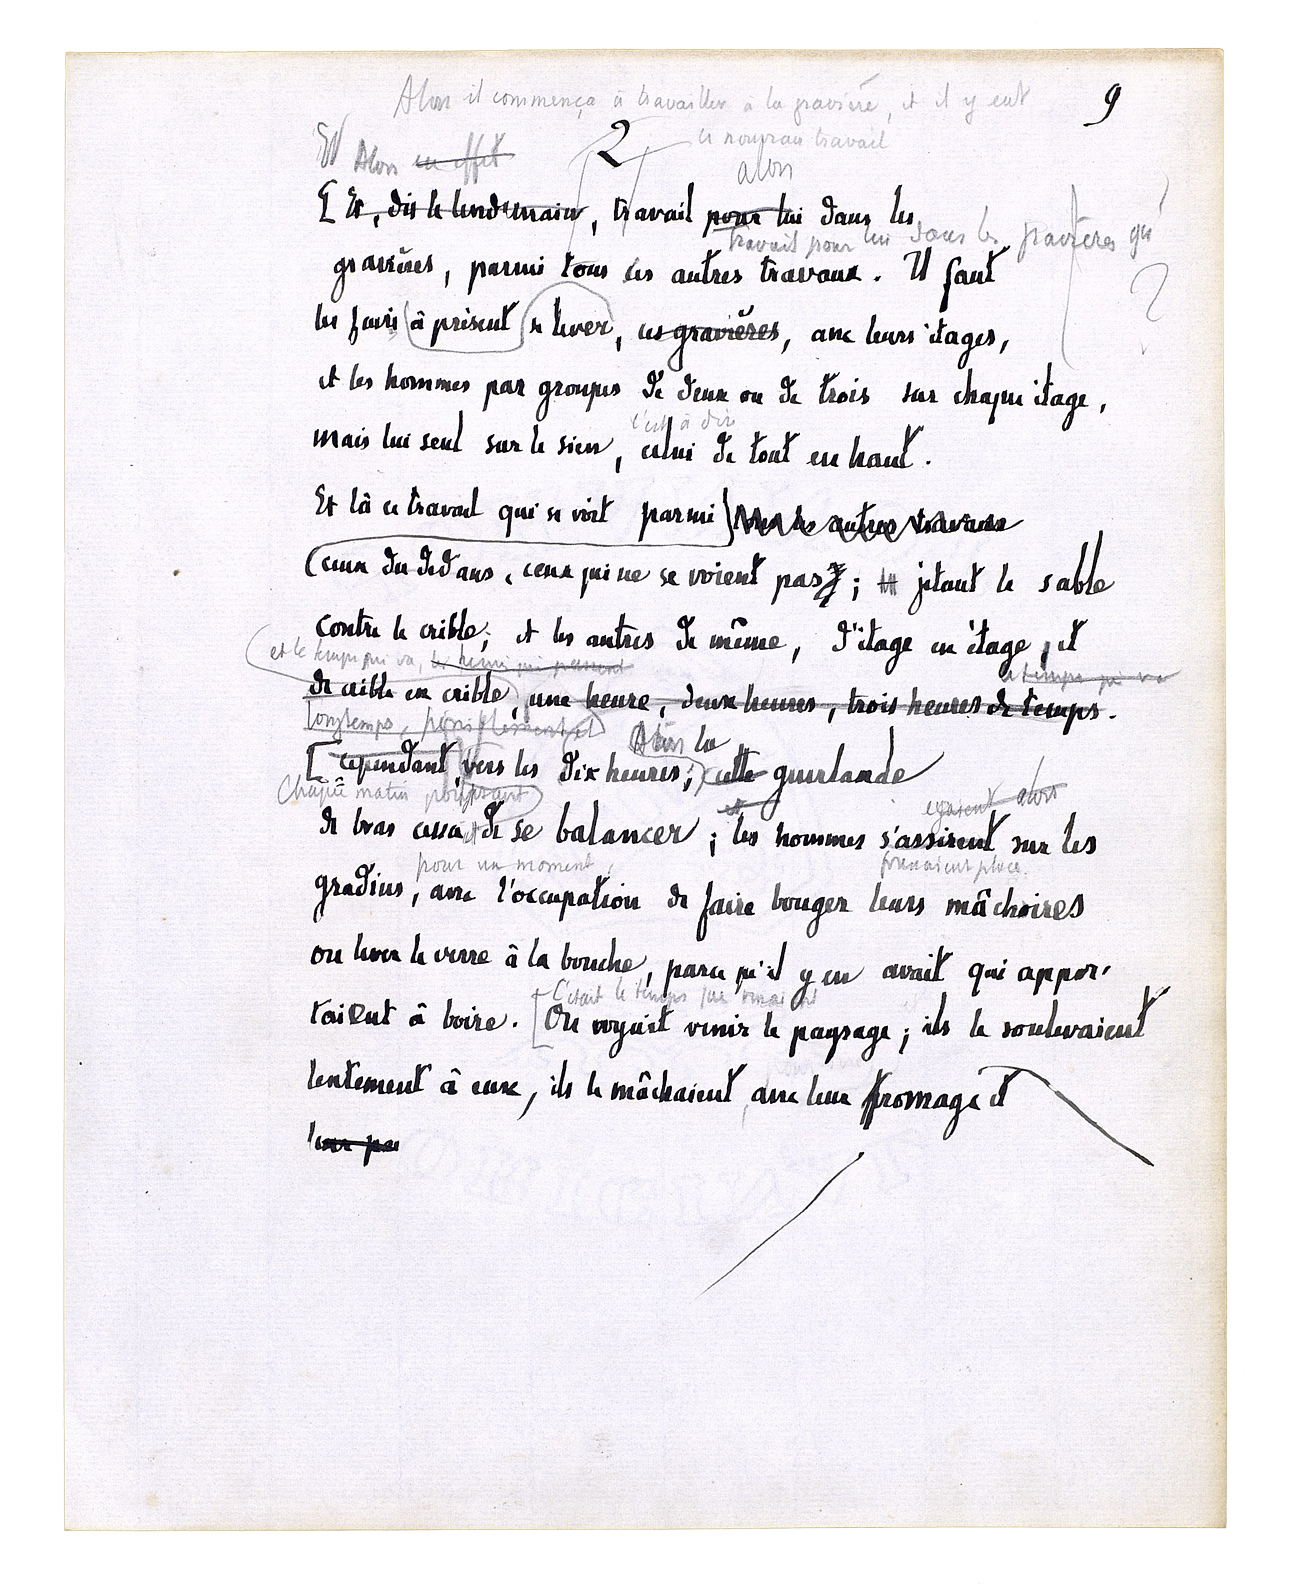 Alors il commença à travailler à la gravière, et il y eut
9
2
ce nouveau travail
Et Alors en effet
alors
[ Et, dès le lendemain, travail pour lui dans les
travail pour lui dans les gravières qu'
gravières, parmi tous les autres travaux. Il faut
?
les faire à présent se lever, ces gravières, avec leurs étages,
et les hommes par groupes de deux ou de trois sur chaque étage,
c'est à dire
mais lui seul sur le sien, celui de tout en haut.
Et là ce travail qui se voit parmi tous les autres travaux
(ceux du dedans, ceux qui ne se voient pas) ; jetant le sable
contre le crible; et les autres de même, d'étage en étage, et
et le temps qui va, les heures qui passent
le temps qui va
de crible en crible, une heure, deux heures, trois heures de temps.
longtemps, péniblement et
Alors la
[ Cependant, vers les dix heures; cette guirlande
Chaque matin pourtant
et
alors
de bras cessa de se balancer ; les hommes s'assirent sur les
pour un moment,
prenaient place.
gradins, avec l'occupation de faire bouger leurs mâchoires
ou lever le verre à la bouche, parce qu'il y en avait qui appor-
C'était le temps que
taient à boire. [On voyait venir le paysage ; ils le soulevaient
lentement à eux, ils le mâchaient, avec leur fromage et
leur pa